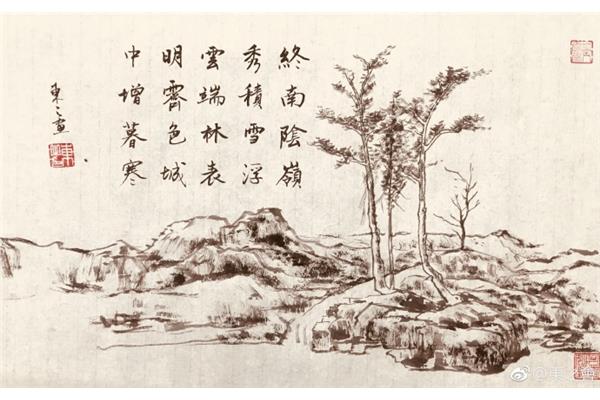 終南陰嶺
秀積雪浮
雲端林表
明霽色城
中增暮寒
東之畫